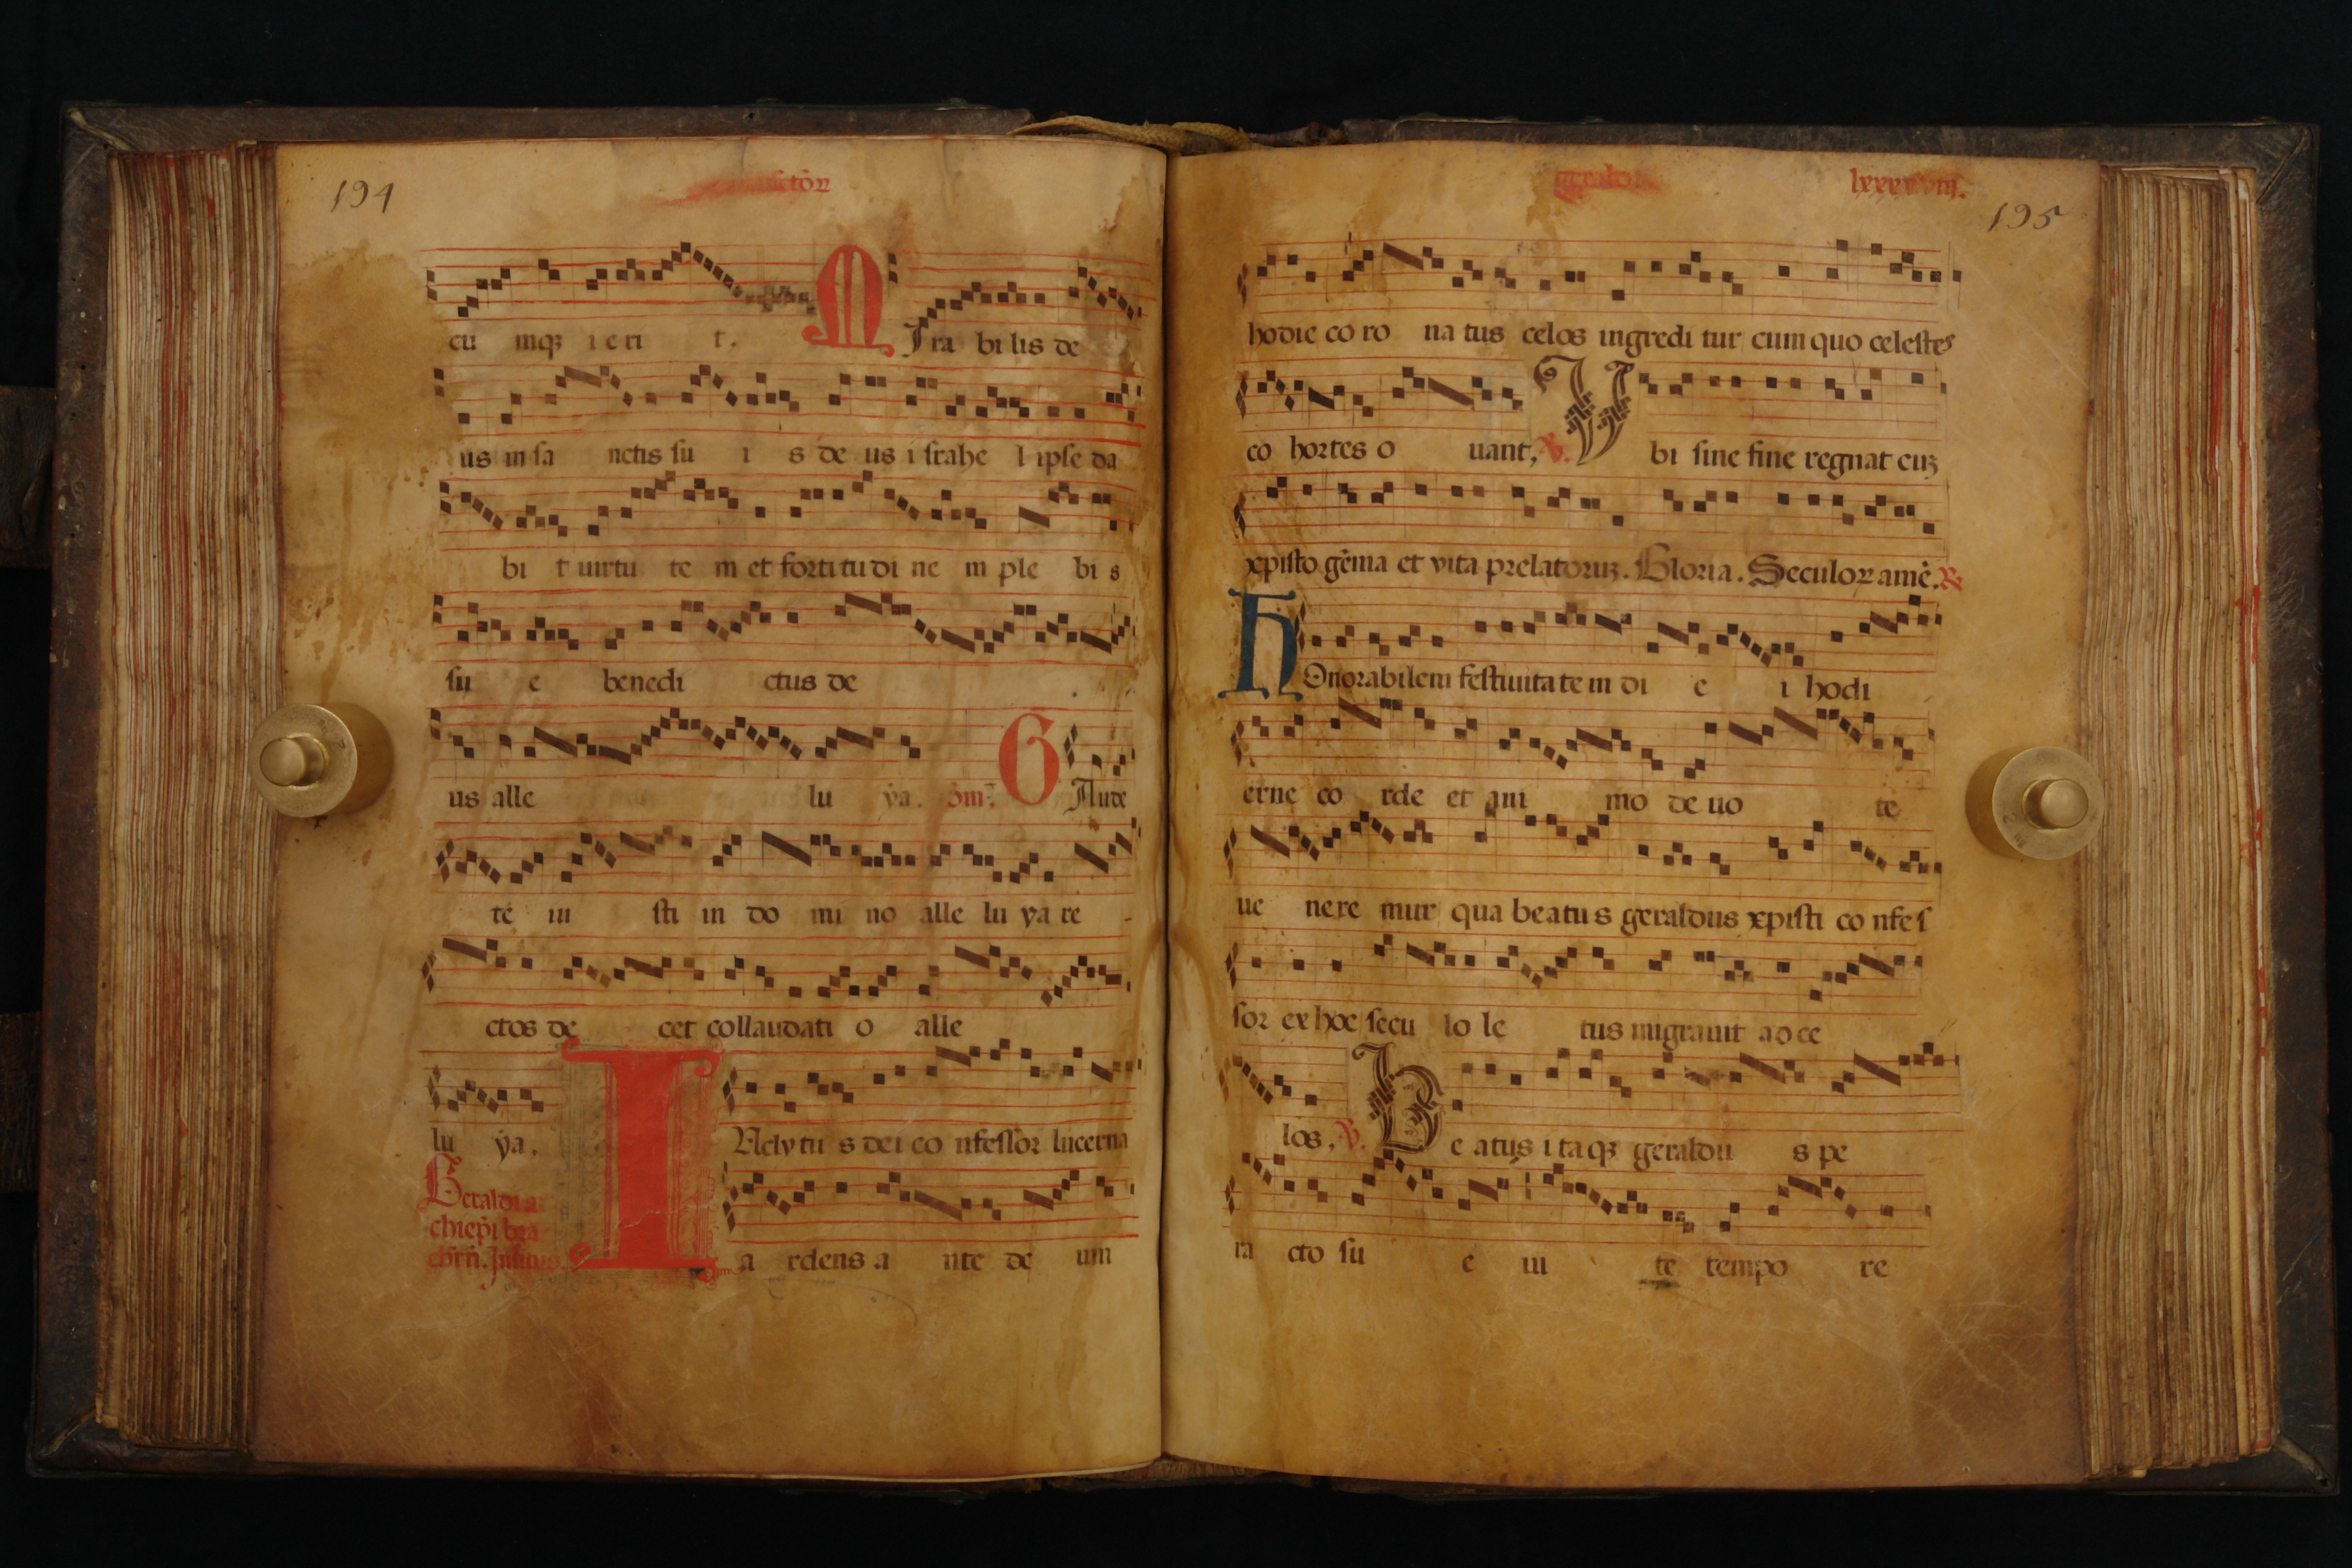 194
ctoꝝ
cu mqꝫ ieri t. MIra bi lis de
us in sa nctis su i s de us i srahe l ipse da
bi t uirtu te m et forti tu di ne m ple bi s
su e benedi ctus de
us alle lu ya. GAude
te iu sti in do mi no alle lu ya re
ctos de cet collaudati o alle
lu ya.
INclytu s dei co nfessor lucerna
Geraldi ar
chiepi bra
a rdens a nte de um
lxxxxviii.
195
hodie co ro na tus celos ingredi tur cum quo celestes
co hortes o uant, V. Vbi sine fine regnat cuꝫ
xpisto gēma et vita prelatoruꝫ. Gloria. Seculoꝝ amē.
HOnorabilem festiuita te m di e i hodi
erne co rde et ani mo de uo te
ue nere mur qua beatu s geraldus xpisti co nfes
sor ex hoc secu lo le tus migrauit ad ce
los, V. Be atus i taqꝫ geraldu s pe
ra cto su e iu te tempo re